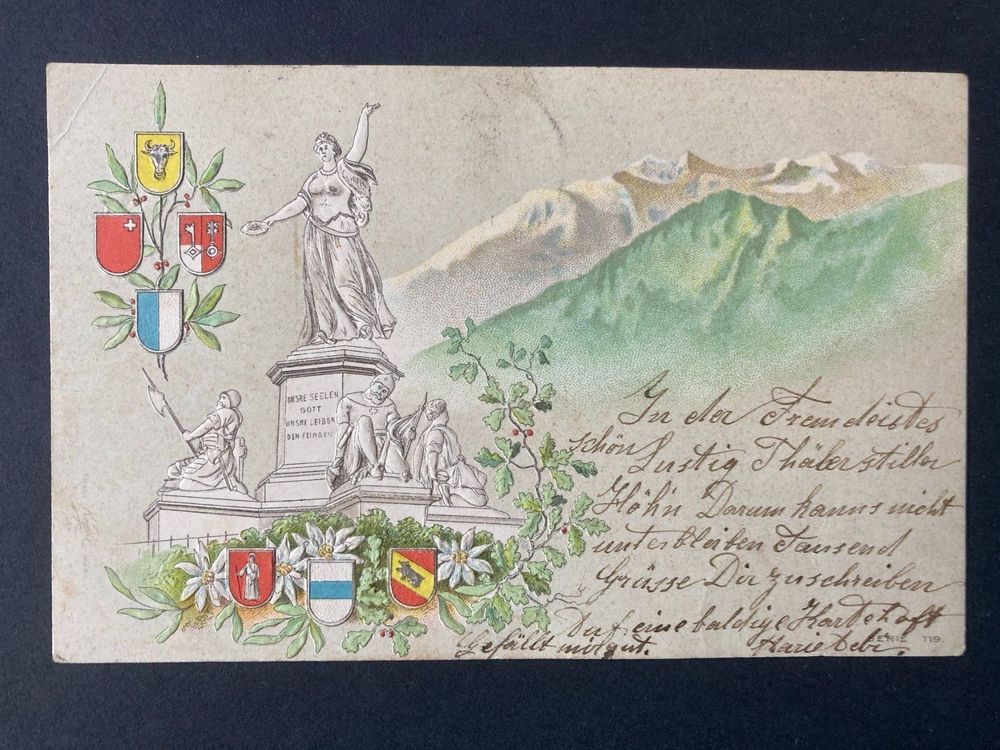 UNSRE SEELEN
GOTT
UNSRE LEIBER
DEN FEINDEN
In der Fremde ist es
schön Lustig Thäler stille
Höhn Darum kanns nicht
unterbleiben Tausend
Grüsse Dir zu schreiben
Auf eine baldige Karte hofft
Gefällt mir gut. Marie
SERIE 119.